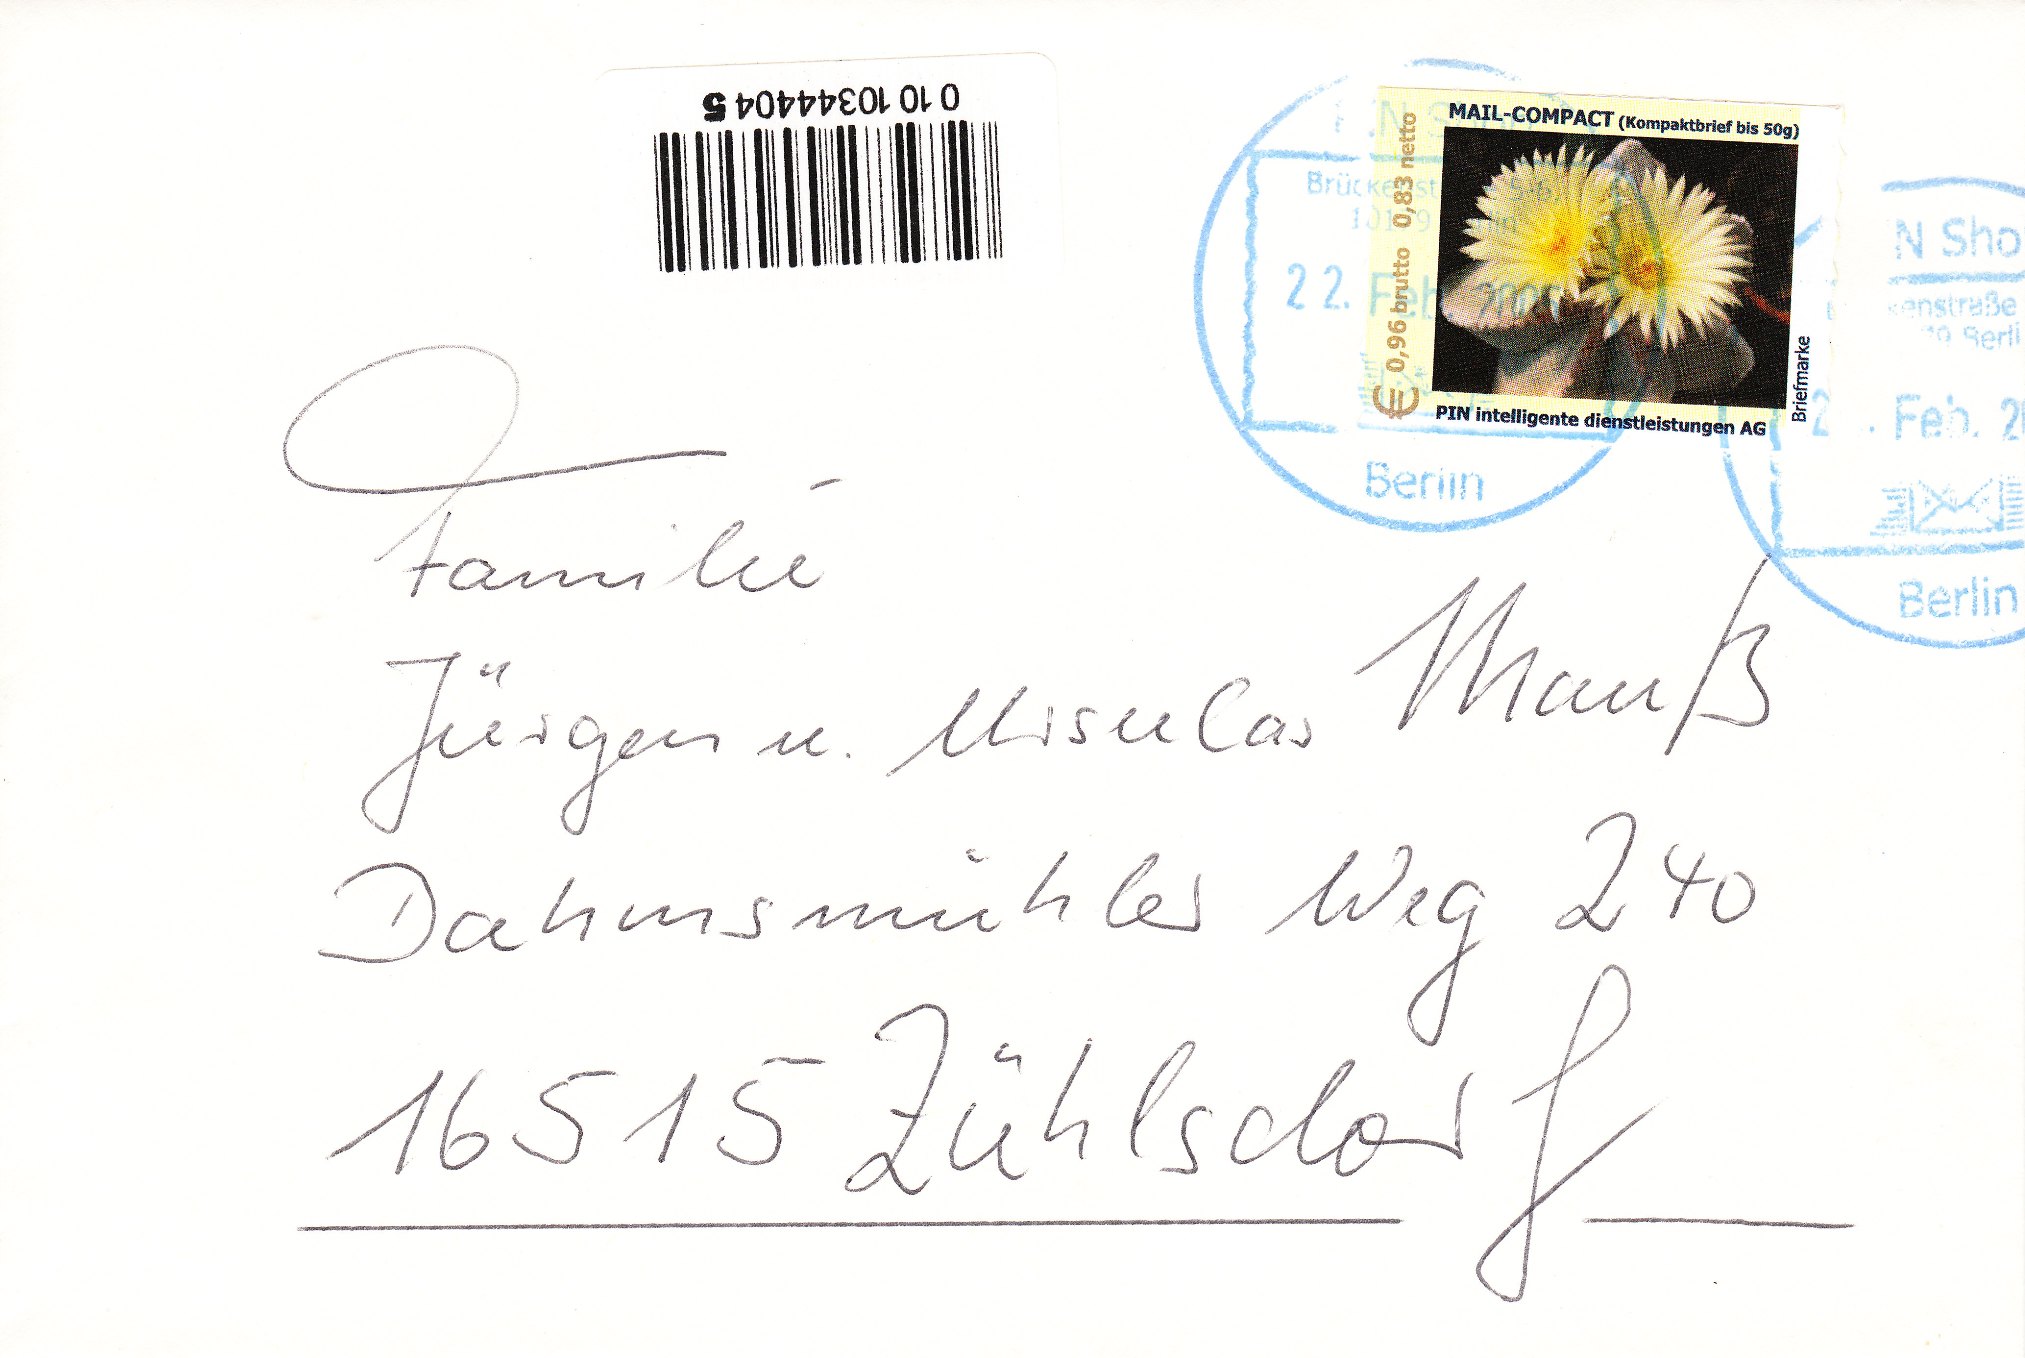 0 10 103444404 5
MAIL-COMPACT (Kompaktbrief bis 50g)
€ 0,96 brutto 0,83 netto
Briefmarke
PIN intelligente dienstleistungen AG
22. Feb. 200
Berlin
N Sho
enstraße
Berli
2 . Feb. 20
Berlin
Familie
Jürgen u. Ursular Mauß
Dahmsmühler Weg 240
16515 Zühlsdorf